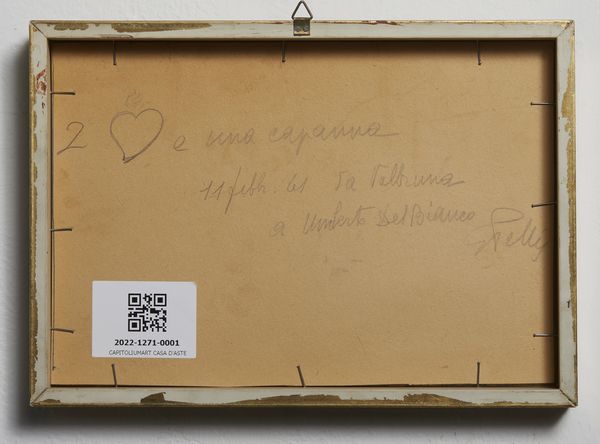 2 ♡ e una capanna
11 febb. 61 Da Valbruna
a Umberto Del Bianco
2022-1271-0001
CAPITOLIUMART CASA D'ASTE